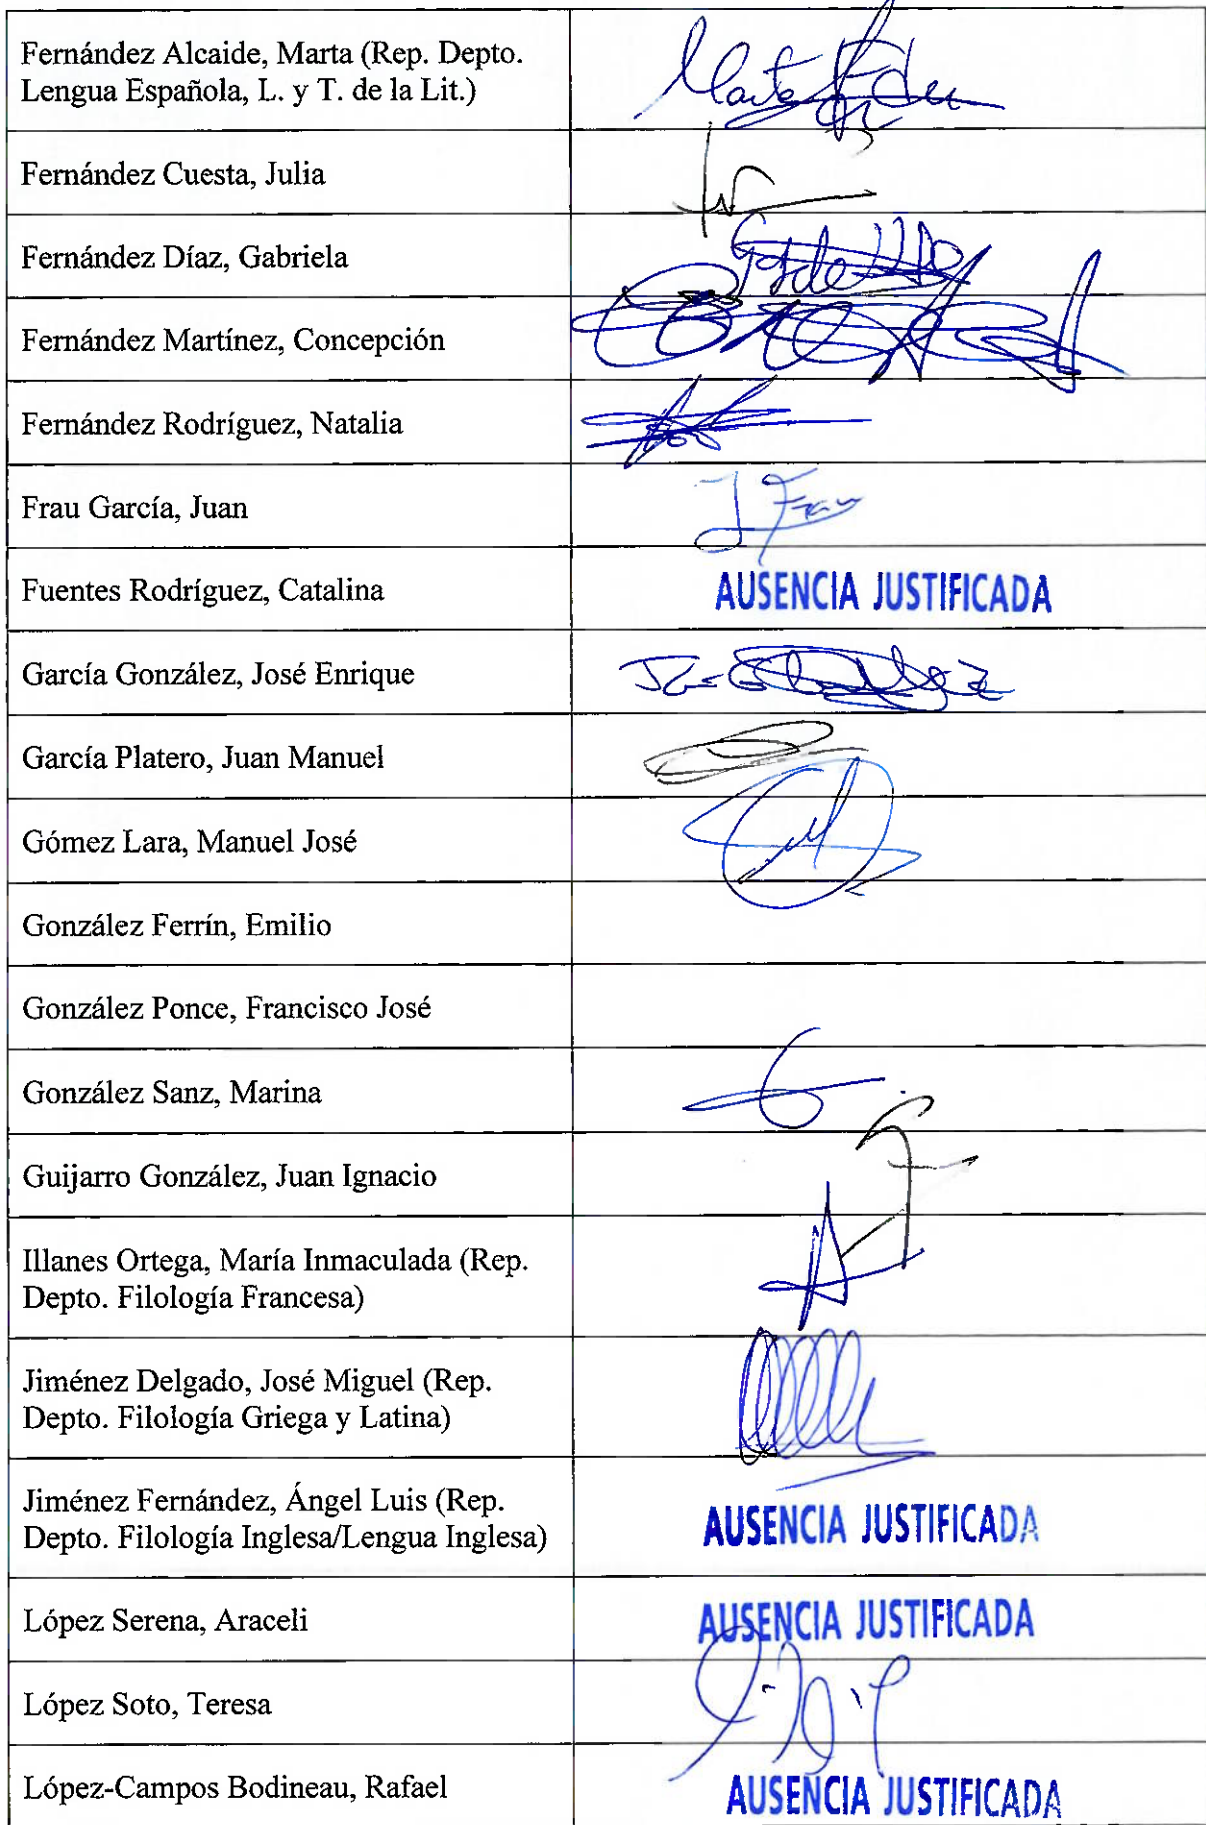 Fernández Alcaide, Marta (Rep. Depto.
Lengua Española, L. y T. de la Lit.)
Fernández Cuesta, Julia
Fernández Díaz, Gabriela
Fernández Martínez, Concepción
Fernández Rodríguez, Natalia
Frau García, Juan
J Frau
Fuentes Rodríguez, Catalina
AUSENCIA JUSTIFICADA
García González, José Enrique
García Platero, Juan Manuel
Gómez Lara, Manuel José
González Ferrín, Emilio
González Ponce, Francisco José
González Sanz, Marina
Guijarro González, Juan Ignacio
Illanes Ortega, María Inmaculada (Rep.
Depto. Filología Francesa)
Jiménez Delgado, José Miguel (Rep.
Depto. Filología Griega y Latina)
Jiménez Fernández, Ángel Luis (Rep.
Depto. Filología Inglesa/Lengua Inglesa)
AUSENCIA JUSTIFICADA
López Serena, Araceli
AUSENCIA JUSTIFICADA
López Soto, Teresa
López-Campos Bodineau, Rafael
AUSENCIA JUSTIFICADA